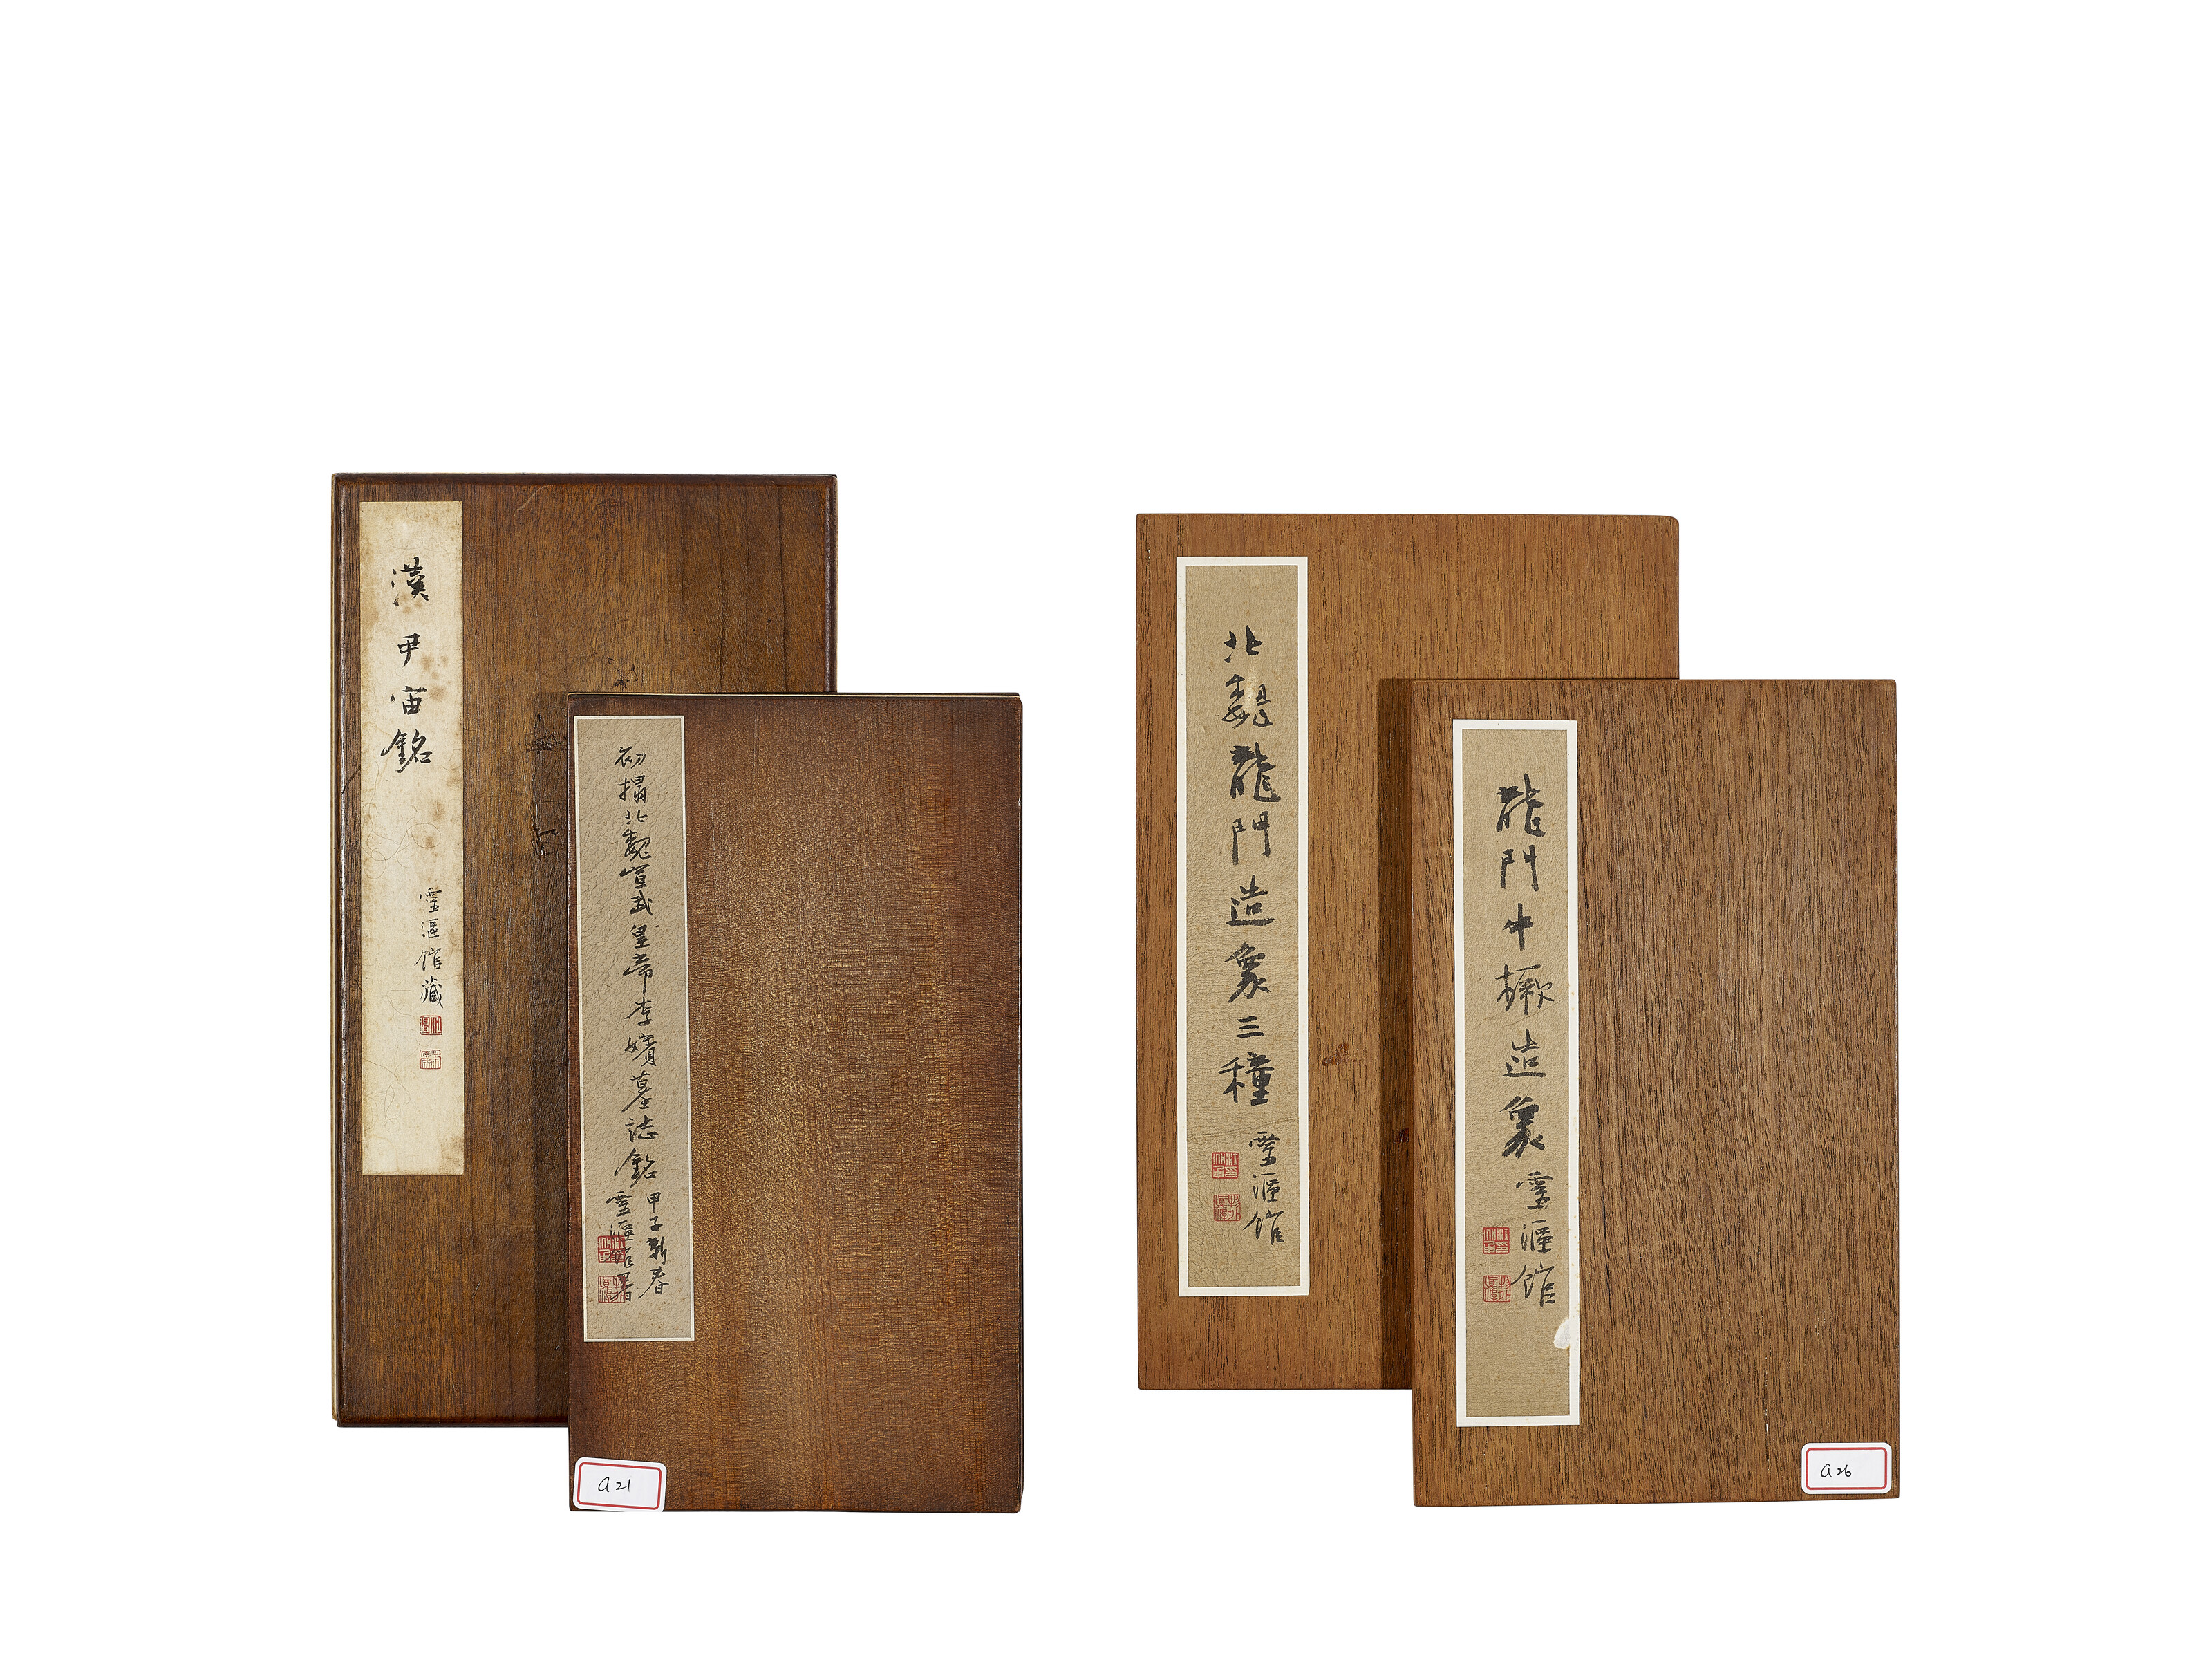 漢尹宙銘
靈漚館藏
初搨北魏宣武皇帝李嬪墓誌銘
甲子新春
靈漚館署
a21
北魏龍門造象三種
靈漚館
龍門中橛造象
靈漚館
a26